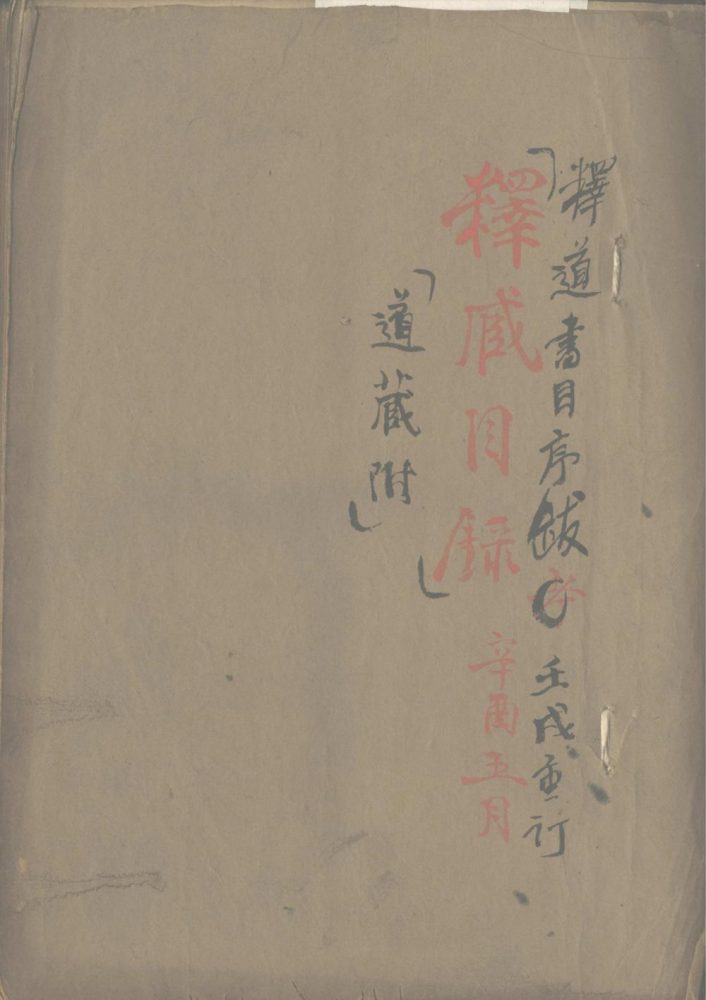 釋道書目序跋 壬戌重訂
釋藏目録 辛酉五月
道藏附